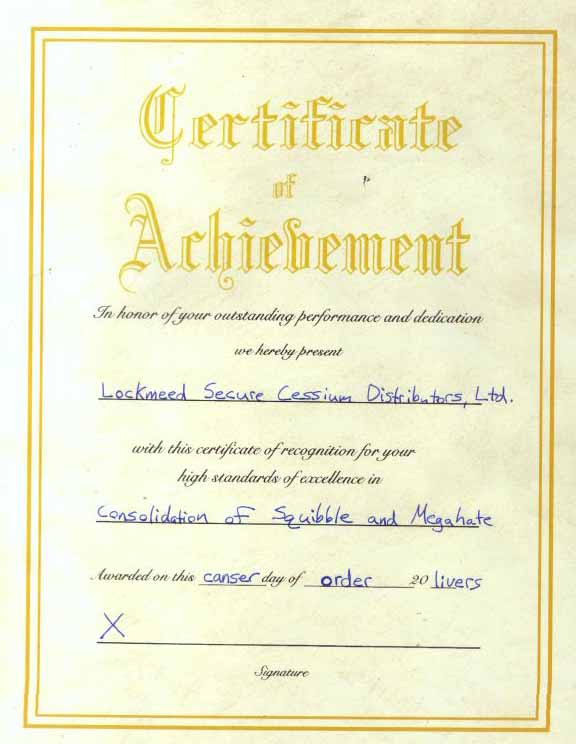 Certificate
of
Achievement
In honor of your outstanding performance and dedication
we hereby present
Lockmeed Secure Cessium Distributors, Ltd.
with this certificate of recognition for your
high standards of excellence in
Consolidation of Squibble and Megahate
Awarded on this canser day of order 20 livers
X
Signature